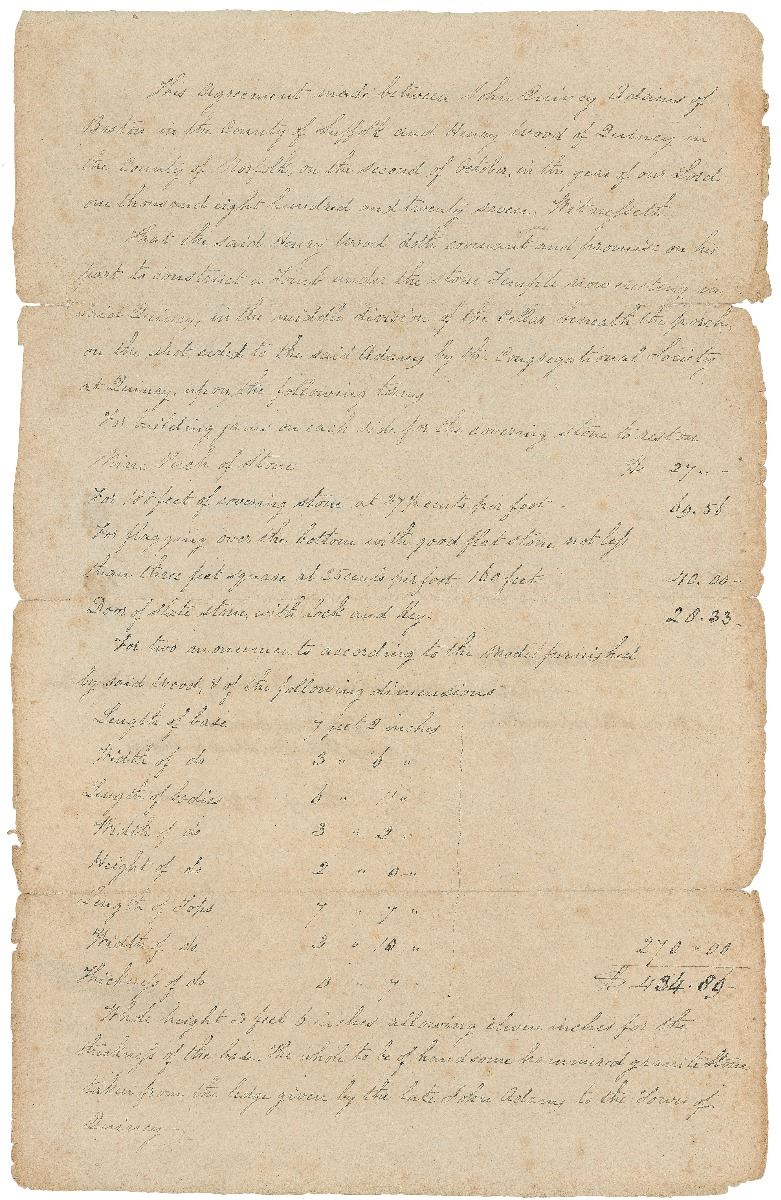 This Agreement made between John Quincy Adams of
Boston in the County of Suffolk and Henry Wood of Quincy in
the County of Norfolk, on the second of October, in the year of our Lord
one thousand eight hundred and twenty seven. Witnesseth
That the said Henry Wood doth covenant and promise on his
part to construct a Tomb under the stone Temple now erecting in
said Quincy, in the middle division of the Cellar beneath the porch,
on the spot ceded to the said Adams by the Congregational Society
at Quincy, upon the following terms
For building jams on each side for the covering stone to rest on
Nine Perch of Stone $ 27 " -
For 185 feet of covering stone at 37½ cents per foot - 69.56
For flagging over the bottom with good flat stone not less
than three feet square at 25 cents per foot 160 feet 40.00 -
Door of slate stone, with lock and Key - 28.33 -
For two monuments according to the model furnished
by said Wood, & of the following dimensions
Length of base 7 feet 2 inches
Width of do 3 " 6 "
Length of bodies 6 " "
Width of do 3 " 2 "
Height of do 2 " 0 "
Length of Tops 7 " 7 "
Width of do 3 " 10 " 270 " 00
Thickness of do 0 " 7 " $ 434.89 -
Whole height 3 feet 6 inches allowing eleven inches for the
thickness of the base. The whole to be of handsome hammered granite Stone
taken from the ledge given by the late John Adams to the Town of
Quincy -